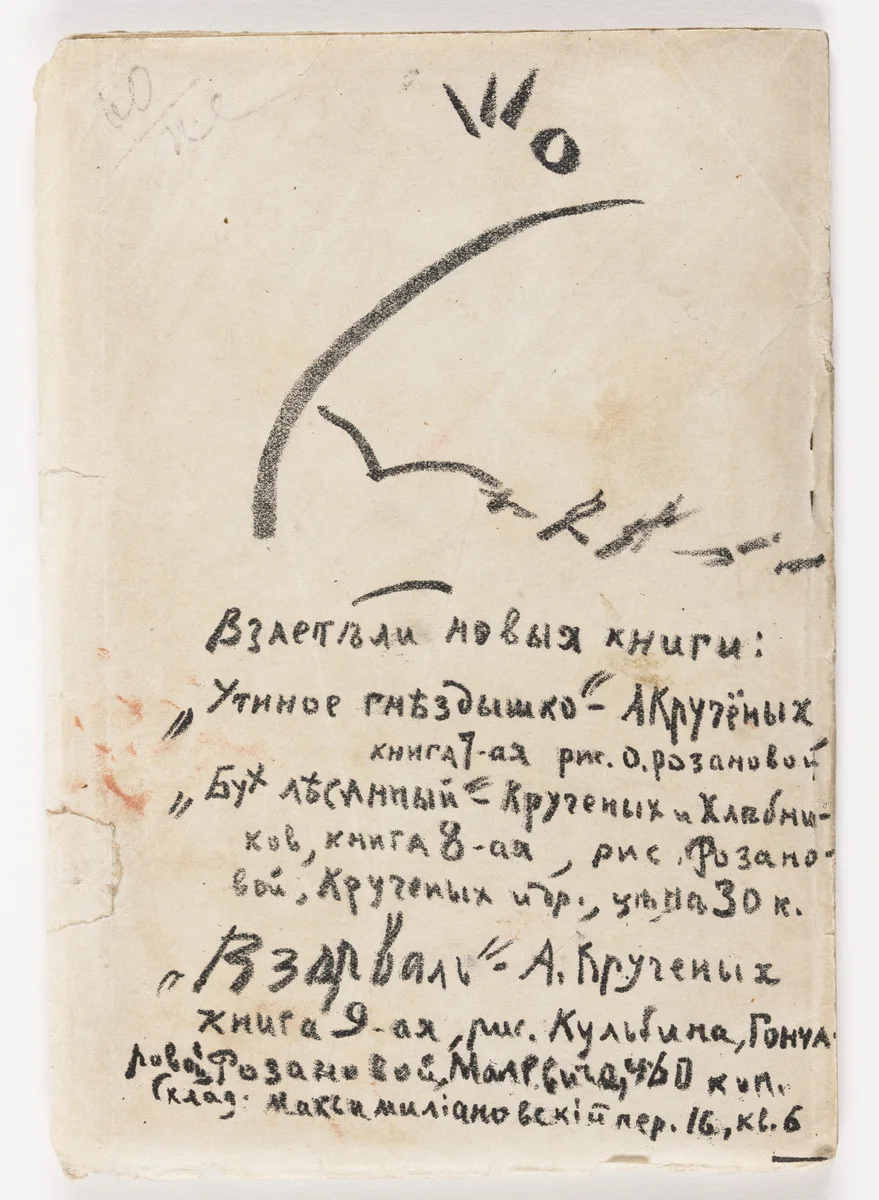 Взлетѣли новыя книги:
„Утиное гнѣздышко“ – А Кручёных
книга 7-ая рис. О. розановой
„Бух лѣсинный“ – Крученых и Хлѣбни-
ков, книга 8-ая, рис. Розано-
вой, Крученых и др., цѣна 30 к.
„Взорваль“ – А. Крученых
книга 9-ая, рис. Кульбина, Гонча-
ровой Розановой, Малевича, ц. 60 коп.
Склад. максимилiановскiй пер. 16, кв. 6